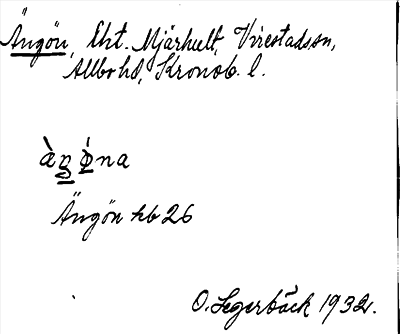 Ängön, Eht. Mjärhult, Virestads sn,
Allbo hd, Kronob. l.
àŋ ö̀na
Ängön hb 26
O. Segerbäck 1932.